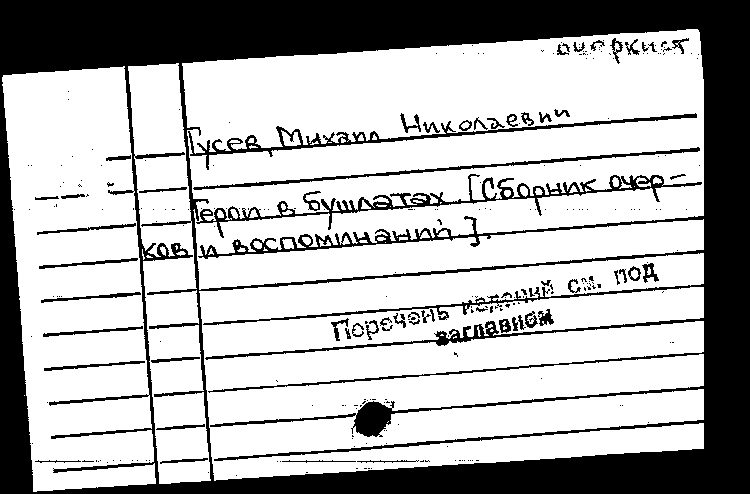 очеркист
Гусев, Михаил Николаевич
Герои в бушлатах. [Сборник очер-
ков и воспоминаний].
Перечень изданий см. под
заглавием